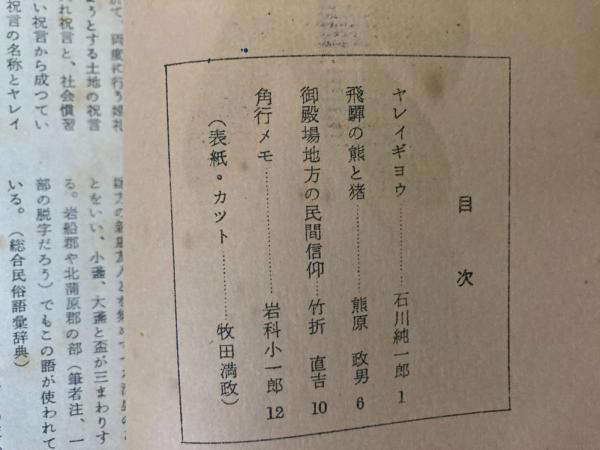 目次
ヤレイギヨウ…………石川純一郎 1
飛騨の熊と猪…………熊原 政男 6
御殿場地方の民間信仰……竹折 直吉 10
角行メモ…………岩科小一郎 12
(表紙・カツト…………牧田満政)
て、両度に行う婚礼
うとする土地の祝言
れ祝言と、社会慣習
い祝言から成つてい
祝言の名称とヤレイ
とをいい、小盞、大盞と盃が三まわりす
る。岩船郡や北蒲原郡の部(筆者注、一
部の脱字だろう)でもこの語が使われて
いる。(総合民俗語彙辞典)